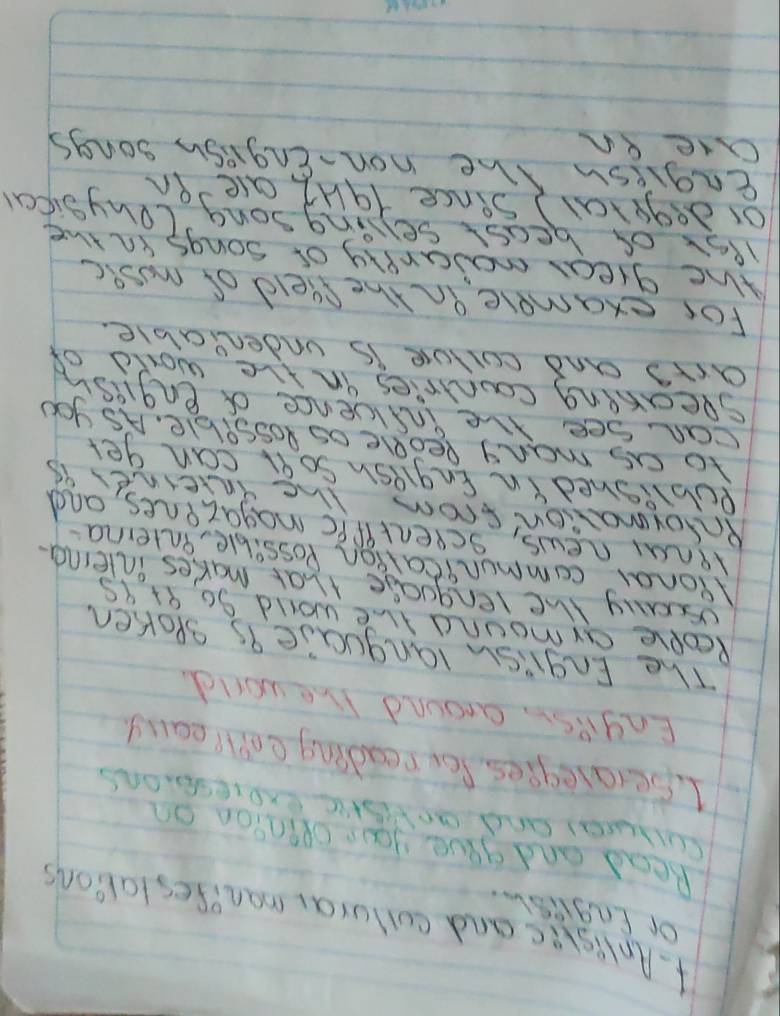 1-Artistic and cultural manifestations
of English.
Read and give your opinion on
cultural and artistic expressions
1. Serategies for reading critically
English around the world.
The English language is spoken
people armound the world so it is
usually the lenguaje that makes interna-
tional communication possible, interna-
tional news, scientific magazines, and
information from the internet is
published in English so it can get
to as many people as possible. As you
can see the influence of English
speaking countries in the world of
arts and culture is undeniable.
For example in the field of music
the great majority of songs in the
list of beast selling song (physical
or digital) since 1942 are in
English the non-English songs
are in